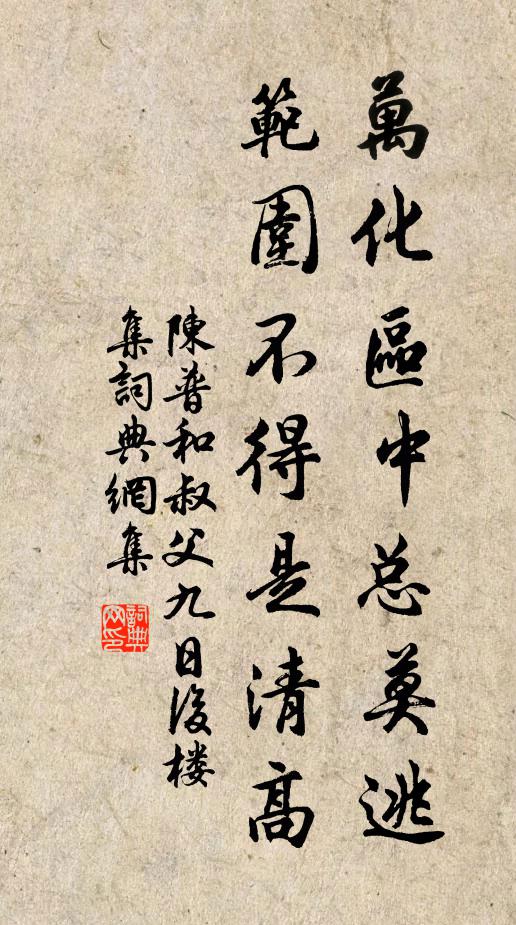 萬化區中总莫逃
範圍不得是清高
陳普和叔父九日後楼
集詞典網集
詞典网印